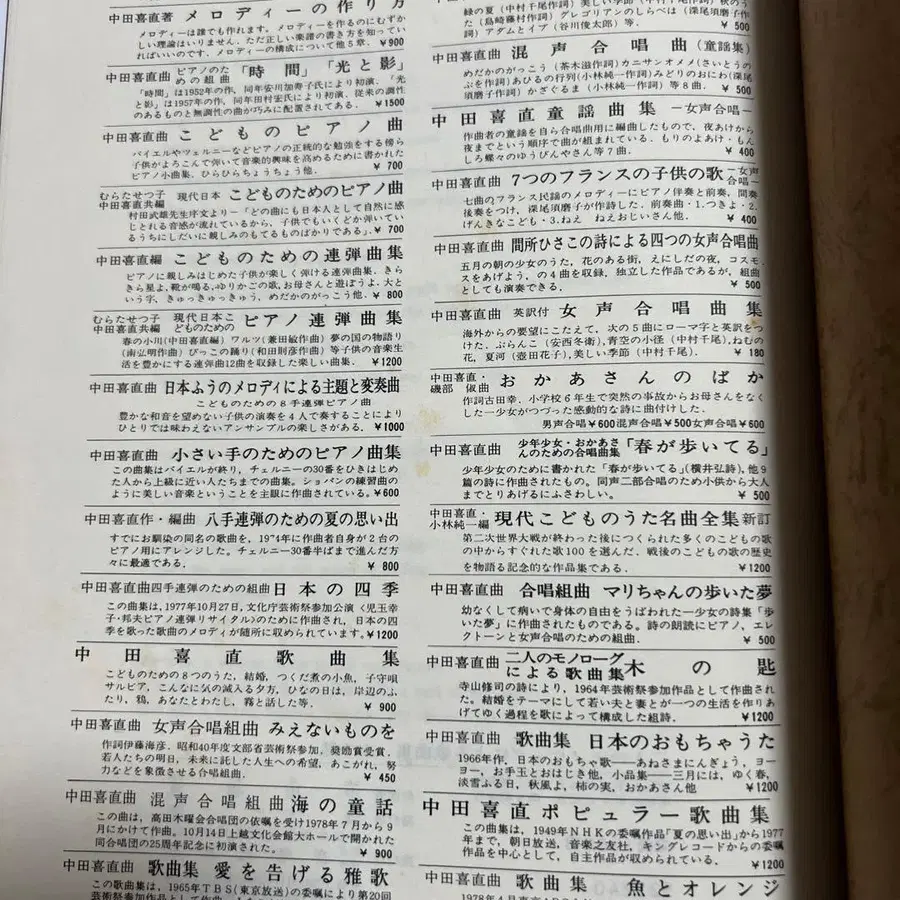 中田喜直著 メロディーの作り方
メロディーは誰でも作れます。メロディーを作るのにむずか
しい理論はいりません。ただ正しい楽譜の書き方を知ってい
ればいいのです。メロディーの構成について他5章. ¥900
中田喜直曲 ピアノのための組曲 「時間」「光と影」
「時間」は1952年の作, 同年安川加寿子氏により初演、「光
と影」は1957年の作, 同年田村宏氏により初演, 従来の調性
のあるものと無調性の曲が巧みに配置されてある. ¥1500
中田喜直曲 こどものピアノ曲
バイエルやツェルニーなどピアノの正統的な勉強をする傍ら
子供がよろこんで弾いて音楽的興味を高めるために書かれた
ピアノ小曲集. ひらひらちょうちょう他. ¥700
むらたせつ子 中田喜直共編 現代日本 こどものためのピアノ曲
村田武雄先生序文より−「どの曲にも日本人として自然に感
じとれる音感が流れているから、子供でもいくどか弾いてい
るうちにしだいに親しみのもてるものばかりである」. ¥700
中田喜直編 こどものための連弾曲集
ピアノに親しみはじめた子供が楽しく弾ける連弾曲集. きら
きら星よ, 靴が鳴る, ゆりかごの歌, お母さんと遊ぼうよ, 大と
いう字, きゅっきゅっきゅう, めだかのがっこう他. ¥800
むらたせつ子 中田喜直共編 現代日本こどものための ピアノ連弾曲集
春の小川(中田喜直編) ワルツ(兼田敏作曲) 夢の国の物語り
(南弘明作曲) びっこの踊り(和田則彦作曲) 等子供の音楽生
活を豊かにする連弾曲12曲を収録した楽しい曲集. ¥1200
中田喜直曲 日本ふうのメロディによる主題と変奏曲
こどものための8手連弾ピアノ曲
豊かな和音を望めない子供の演奏を4人で奏することにより
ひとりでは味わえないアンサンブルの楽しさがある. ¥1000
中田喜直曲 小さい手のためのピアノ曲集
この曲集はバイエルが終り, チェルニーの30番をひきはじめ
た人から上級に近い人たちまでの曲集. ショパンの練習曲の
ように美しい音楽ということを主眼に作曲されている. ¥600
中田喜直作・編曲 八手連弾のための夏の思い出
すでにお馴染の同名の歌曲を, 1974年に作曲者自身が2台の
ピアノ用にアレンジした。チェルニー30番半ばまで進んだ方
々に最適である. ¥800
中田喜直曲 四手連弾のための組曲 日本の四季
この曲集は, 1977年10月27日, 文化庁芸術祭参加公演〈児玉幸
子・邦夫ピアノ連弾リサイタル〉のために作曲され, 日本の四
季を歌った歌曲のメロディが随所に収められています. ¥1200
中田喜直歌曲集
こどものための8つのうた, 結婚, つくだ煮の小魚, 子守唄
サルビア, こんなに気の滅入る夕方, ひなの日は, 岸辺のふ
たり, 鴉, あなたとわたし, 霧と話した等. ¥900
中田喜直曲 女声合唱組曲 みえないものを
作詞伊藤海彦. 昭和40年度文部省芸術祭参加, 奨励賞受賞,
若人たちの明日, 未来に託した人生への希望, あこがれ, 努
力などを象徴させる合唱組曲. ¥450
中田喜直曲 混声合唱組曲 海の童話
この曲は, 高田木曜会合唱団の依嘱を受け1978年7月から9
月にかけて作曲. 10月14日上越文化会館大ホールで開かれた
同合唱団の25周年記念に初演された. ¥900
中田喜直曲 歌曲集 愛を告げる雅歌
この歌曲集は, 1965年TBS(東京放送)の委嘱により第20回
緑の夏(中村千尾作詞) 美しい季節(中村千尾作詞) 秋のう
た(島崎藤村作詞) グレゴリアンのしらべは(深尾須磨子作
詞) アダムとイブ(谷川俊太郎)等. ¥500
中田喜直曲 混声合唱曲(童謡集)
めだかのがっこう(茶木滋作詞) カニサンオメメ(さいとうの
ぶを作詞) あひるの行列(小林純一作詞) みどりのおにわ(深尾
須磨子作詞) かざぐるま(小林純一作詞) 等8曲. ¥500
中田喜直童謡曲集 −女声合唱−
作曲者の童謡を自ら合唱曲用に編曲したもので, 夜あけから
夜までという順序で曲が組まれている. もりのよあけ・もん
しろ蝶々のゆうびんやさん等7曲. ¥400
中田喜直曲 7つのフランスの子供の歌 −女声合唱−
七曲のフランス民謡のメロディーにピアノ伴奏と前奏, 間奏
後奏をつけ, 深尾須磨子が作詩した. 前奏曲・1.つきよ・2.
げんきなこども・3.ねえ ねえおじいさん他. ¥400
中田喜直曲 間所ひさこの詩による四つの女声合唱曲
五月の朝の少女のうた, 花のある街, えにしだの夜, コスモ
スをあげよう, の4曲を収録, 独立した作品であるが, 組曲
としても演奏できる. ¥500
中田喜直曲 英訳付 女声合唱曲集
海外からの要望にこたえて, 次の5曲にローマ字と英訳をつ
けた. ぶらんこ(安西冬衛), 青空の小径(中村千尾), ねむの
花, 夏河(壺田花子), 美しい季節(中村千尾) ¥180
中田喜直・磯部俶曲 おかあさんのばか
作詞古田幸. 小学校6年生で突然の事故からお母さんをなく
した一少女がつづった感動的な詩に曲付けした.
男声合唱¥600混声合唱¥500女声合唱¥600
中田喜直曲 少年少女・おかあさんのための合唱曲集 「春が歩いてる」
少年少女のために書かれた「春が歩いてる」(横井弘詩), 他9
篇の詩に作曲されたもの。同声二部合唱のため小供から大人
までとりあげるにふさわしい。 ¥500
中田喜直・小林純一編 現代こどものうた名曲全集 新訂
第二次世界大戦が終わった後につくられた多くのこどもの歌
の中からすぐれた歌100を選んだ. 戦後のこどもの歌の歴史
を物語る記念的な作品集である. ¥1200
中田喜直曲 合唱組曲 マリちゃんの歩いた夢
幼なくして病いで身体の自由をうばわれた一少女の詩集「歩
いた夢」に作曲されたものである。詩の朗読にピアノ, エレ
クトーンと女声合唱のための組曲. ¥500
中田喜直曲 二人のモノローグによる歌曲集 木の匙
寺山修司の詩により, 1964年芸術祭参加作品として作曲され
た。結婚をテーマにして若い夫と妻とが一つの生活を作りあ
げてゆく過程を歌によって構成した組詩. ¥1200
中田喜直曲 歌曲集 日本のおもちゃうた
1966年作, 日本のおもちゃ歌−あねさまにんぎょう, ヨー
ヨー, お手玉とおはじき他, 小品集−三月には, ゆく春,
淡雪ふる日, 秋風よ, 柿の実, おかあさん他 ¥1200
中田喜直ポピュラー歌曲集
この曲集は, 1949年NHKの委嘱作品「夏の思い出」から1977
年まで, 朝日放送, 音楽之友社, キングレコードからの委嘱
作品を中心として, 自主作品が収められている. ¥1200
中田喜直曲 歌曲集 魚とオレンジ